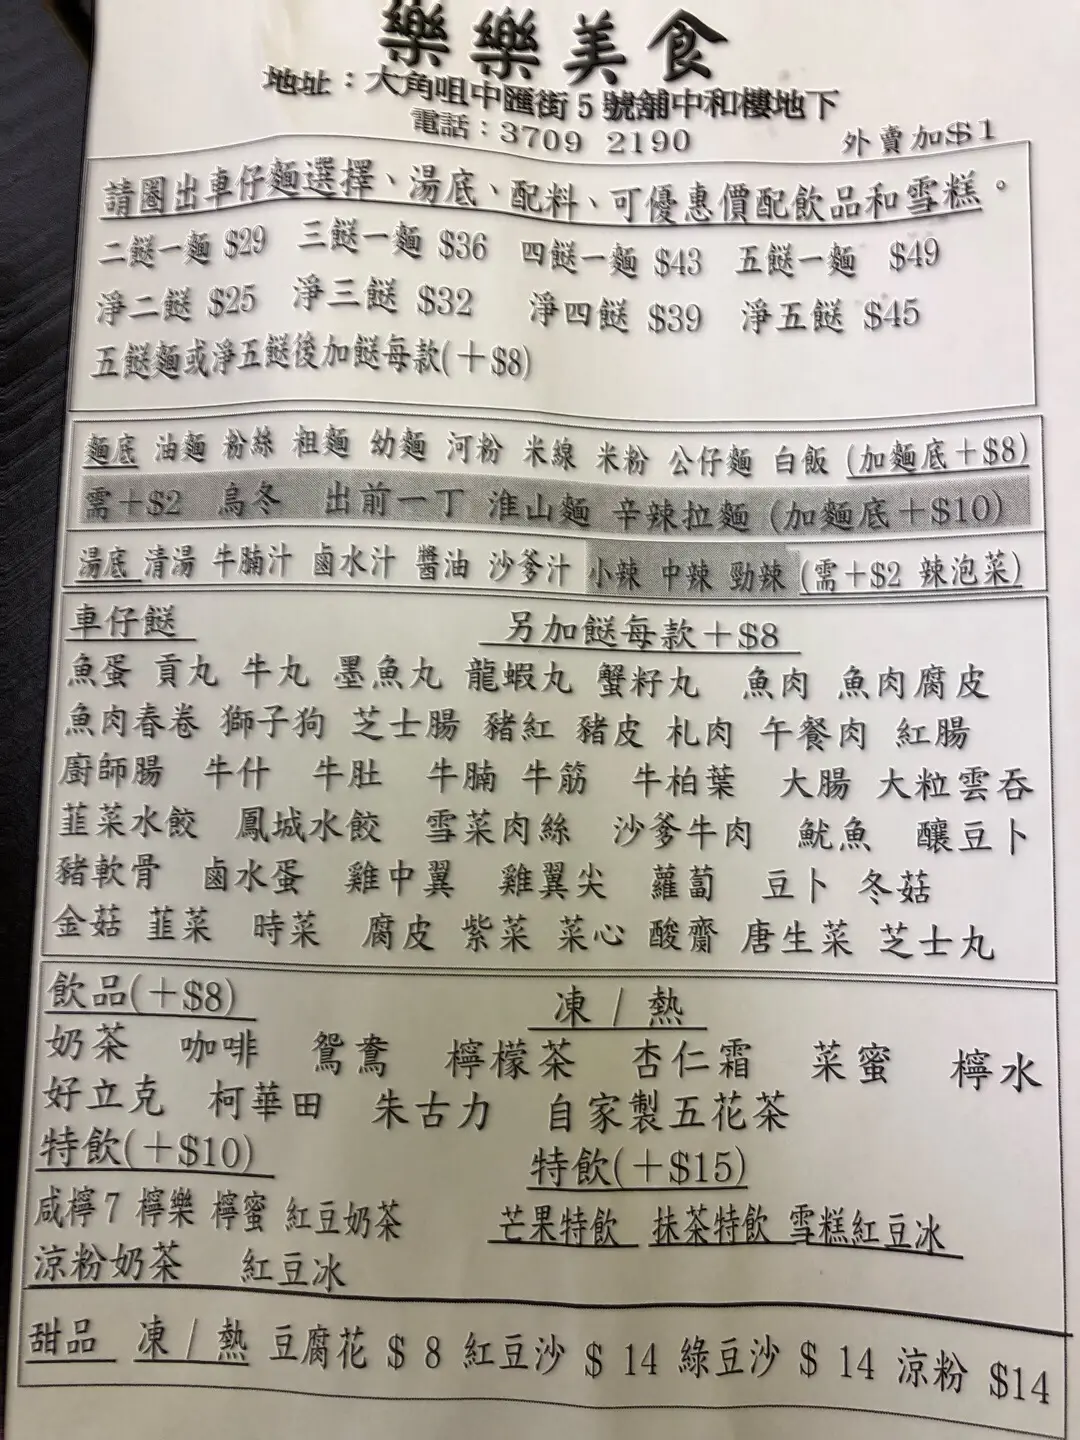 樂樂美食
地址：大角咀中匯街5號舖中和樓地下
電話：3709 2190 外賣加$1
請圈出車仔麵選擇、湯底、配料、可優惠價配飲品和雪糕。
二餸一麵 $29 三餸一麵 $36 四餸一麵 $43 五餸一麵 $49
淨二餸 $25 淨三餸 $32 淨四餸 $39 淨五餸 $45
五餸麵或淨五餸後加餸每款(＋$8)
麵底 油麵 粉絲 粗麵 幼麵 河粉 米線 米粉 公仔麵 白飯 (加麵底＋$8)
需＋$2 烏冬 出前一丁 淮山麵 辛辣拉麵 (加麵底＋$10)
湯底 清湯 牛腩汁 鹵水汁 醬油 沙爹汁 小辣 中辣 勁辣 (需＋$2 辣泡菜)
車仔餸 另加餸每款＋$8
魚蛋 貢丸 牛丸 墨魚丸 龍蝦丸 蟹籽丸 魚肉 魚肉腐皮
魚肉春卷 獅子狗 芝士腸 豬紅 豬皮 札肉 午餐肉 紅腸
廚師腸 牛什 牛肚 牛腩 牛筋 牛柏葉 大腸 大粒雲吞
韮菜水餃 鳳城水餃 雪菜肉絲 沙爹牛肉 魷魚 釀豆卜
豬軟骨 鹵水蛋 雞中翼 雞翼尖 蘿蔔 豆卜 冬菇
金菇 韮菜 時菜 腐皮 紫菜 菜心 酸齋 唐生菜 芝士丸
飲品(＋$8) 凍 / 熱
奶茶 咖啡 鴛鴦 檸檬茶 杏仁霜 菜蜜 檸水
好立克 柯華田 朱古力 自家製五花茶
特飲(＋$10) 特飲(＋$15)
咸檸7 檸樂 檸蜜 紅豆奶茶 芒果特飲 抹茶特飲 雪糕紅豆冰
涼粉奶茶 紅豆冰
甜品 凍 / 熱 豆腐花 $ 8 紅豆沙 $ 14 綠豆沙 $ 14 涼粉 $14